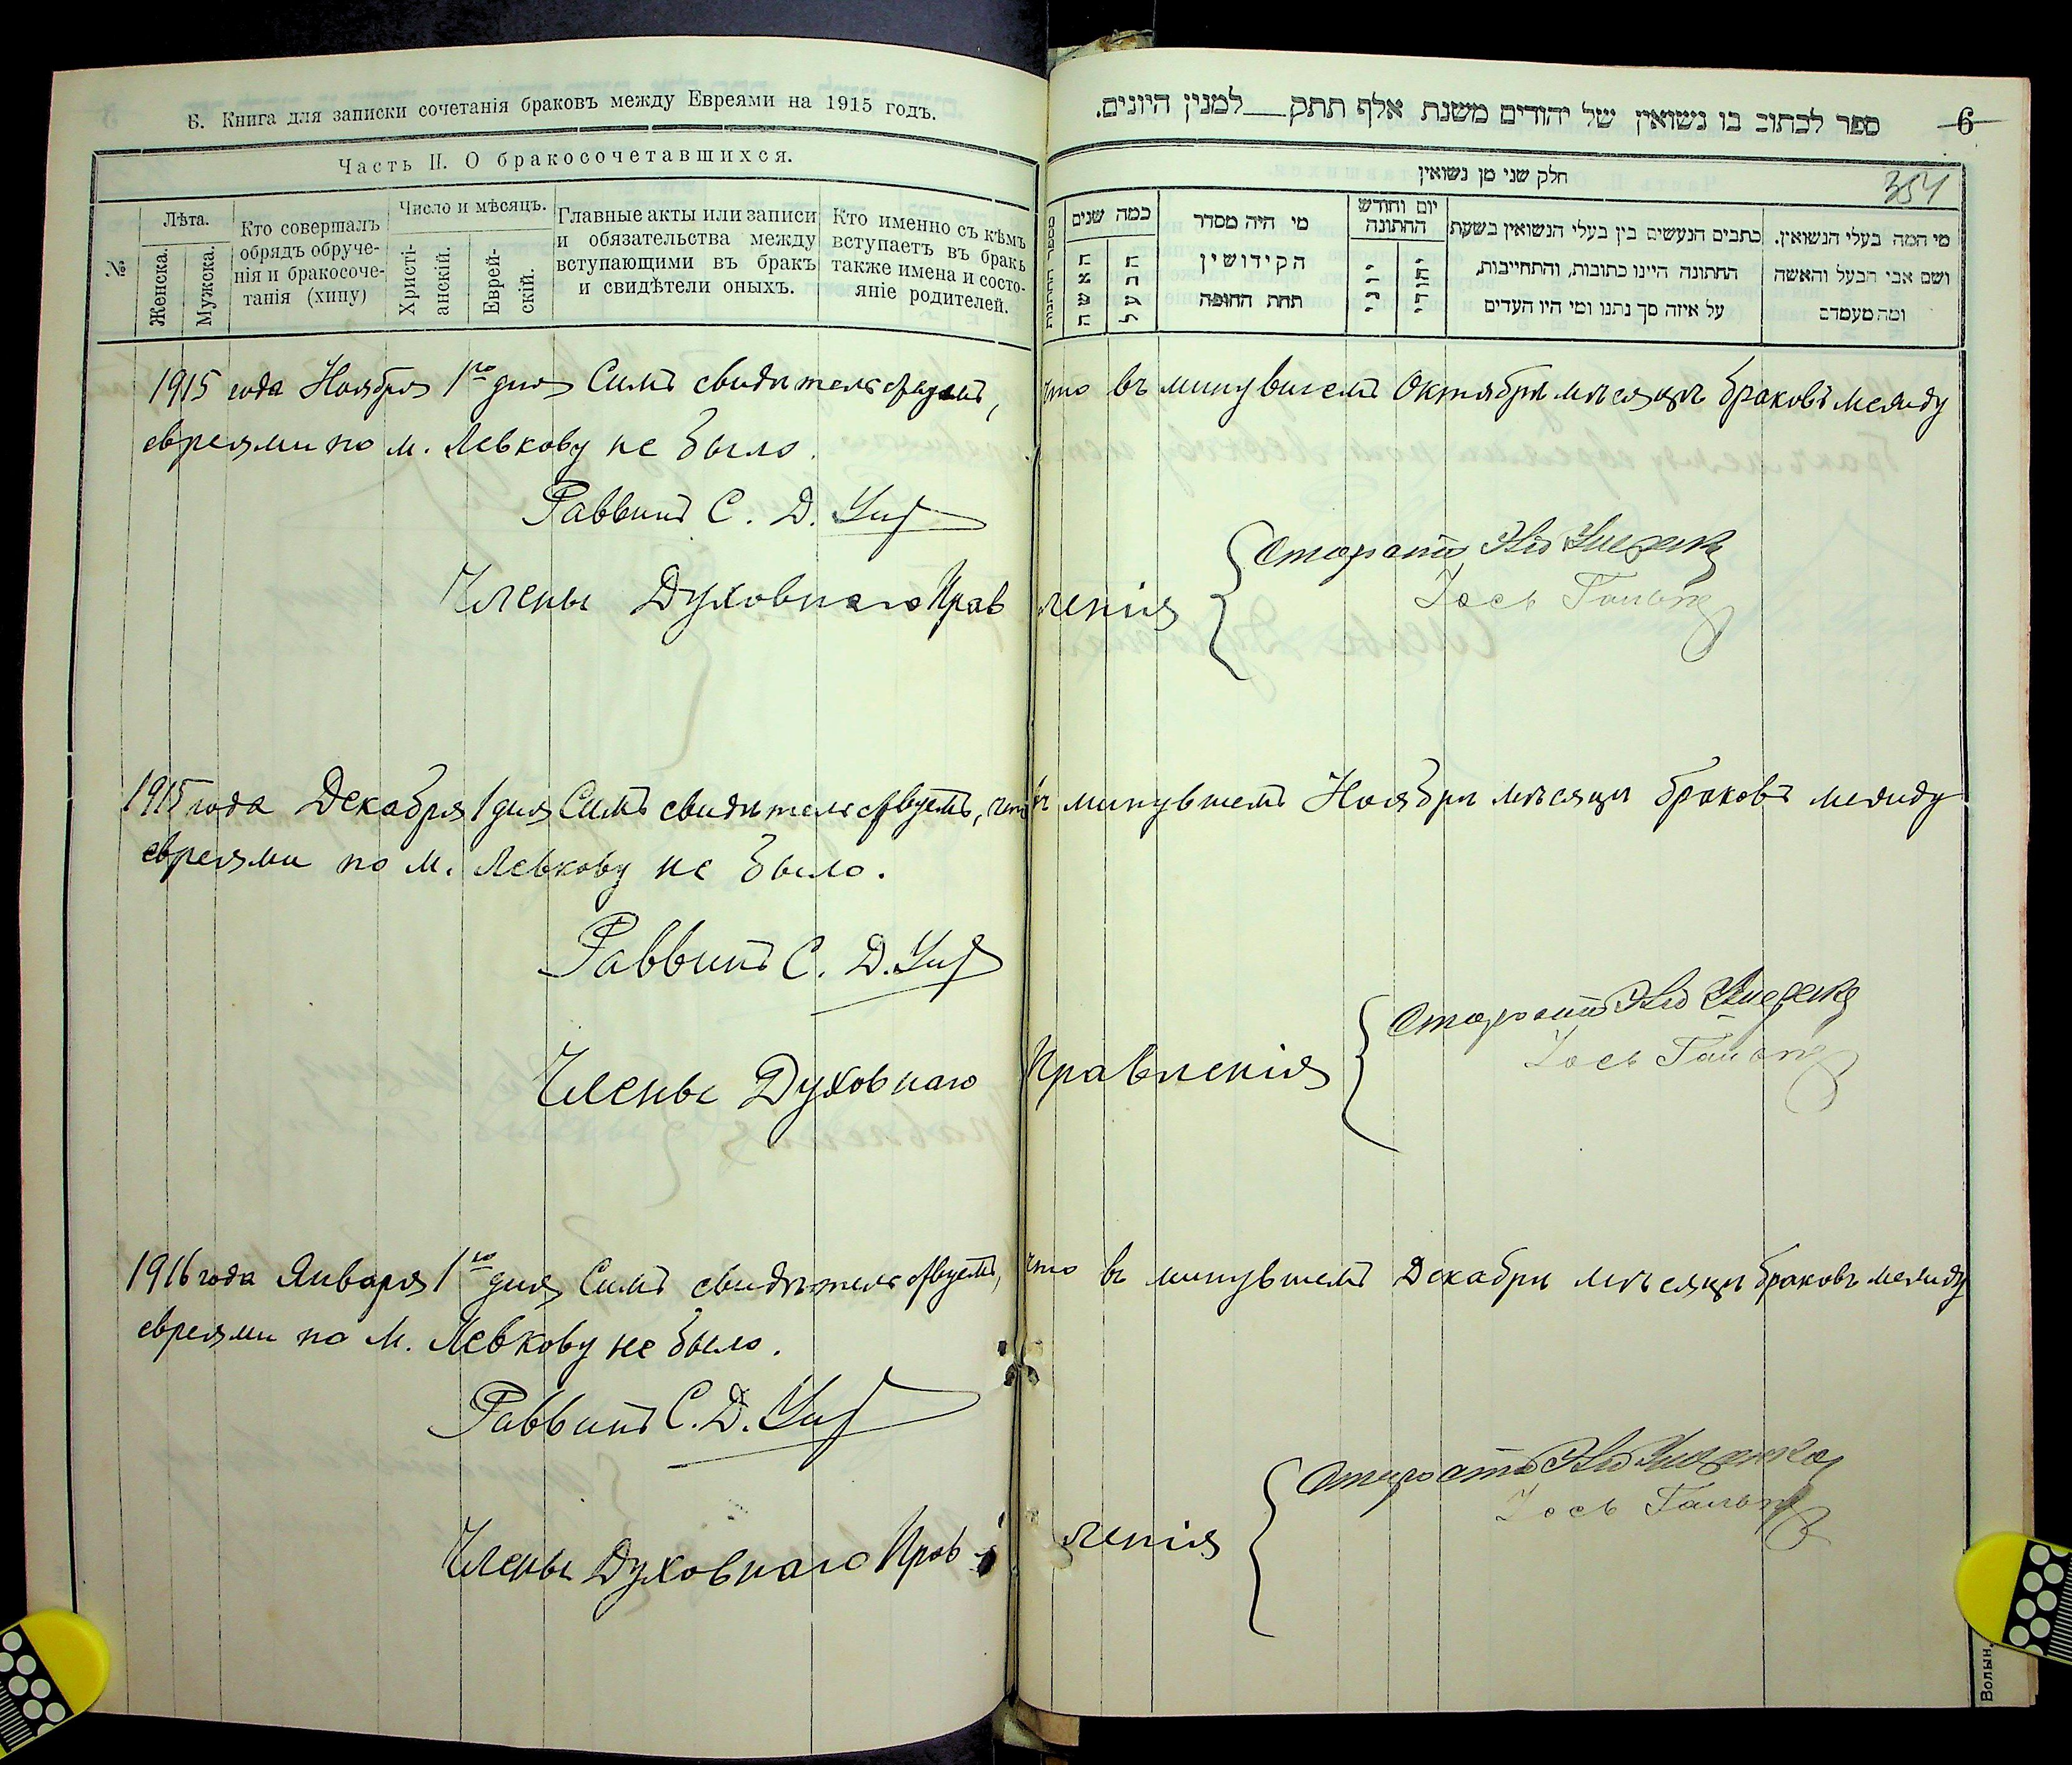 Б. Книга для записки сочетанія браковъ между Евреями на 1915 годъ.
Часть II. О бракосочетавшихся.
№
Лѣта.
Женска.
Мужска.
Кто совершалъ
обрядъ обруче-
нія и бракосоче-
танія (хипу)
Число и мѣсяцъ.
Христі-
анскій.
Еврей-
скій.
Главные акты или записи
и обязательства между
вступающими въ бракъ
и свидѣтели оныхъ.
Кто именно съ кѣмъ
вступаетъ въ бракъ
также имена и состо-
яніе родителей.
ספר לכתוב בו נשואין של יהודים משנת אלף תתק___למנין היונים.
6
חלק שני מן נשואין
354
מי המה בעלי הנשואין.
ושם אבי הבעל והאשה
ומה מעמדם
כתבים הנעשים בין בעלי הנשואין בשעת
החתונה היינו כתובות, והתחייבות,
על איזה סך נתנו ומי היו העדים
יום וחודש
החתונה
יהודי
יוני
מי היה מסדר
הקידושין
תחת החופה
כמה שנים
הבעל
האשה
מספר החתונות
1915 года Ноября 1го дня Симъ свидѣтельствуемъ, что въ минувшемъ Октябрѣ мѣсяцѣ браковъ между
евреями по м. Левкову не было.
Раввинъ С. Д.
Члены Духовнаго Правленія
Староста
Іось
1915 года Декабря 1 дня Симъ свидѣтельствуемъ, что въ минувшемъ Ноябрѣ мѣсяцѣ браковъ между
евреями по м. Левкову не было.
Раввинъ С. Д.
Члены Духовнаго Правленія
Староста
Іось
1916 года Января 1го дня Симъ свидѣтельствуемъ, что въ минувшемъ Декабрѣ мѣсяцѣ браковъ между
евреями по м. Левкову не было.
Раввинъ С. Д.
Члены Духовнаго Правленія
Староста
Іось
Волын.